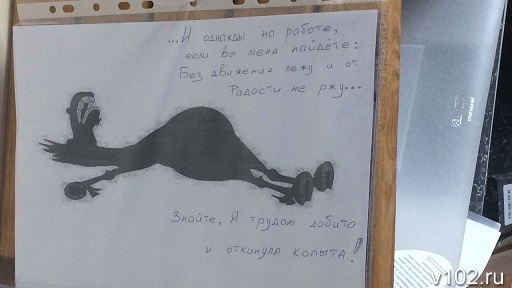 ...И однажды на работе,
если вы меня найдёте:
Без движения лежу и от
Радости не ржу...
Знайте, Я трудом добита
и откинула копыта!
v102.ru